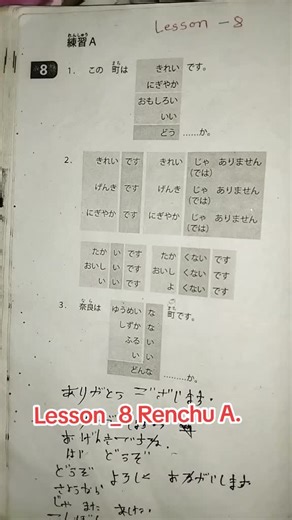 Lesson - 8
れんしゅう
練習 A
8
1. この 町は きれい です。
まち
にぎやか
おもしろい
いい
どう ……か。
2. きれい です きれい じゃ ありません
(では)
げんき です げんき じゃ ありません
(では)
にぎやか です にぎやか じゃ ありません
(では)
たか い です たか くない です
おいし い です おいし くない です
い い です よ くない です
なら
3. 奈良は ゆうめい な 町です。
しずか な
ふる い
い い
どんな ……か。
ありがとう ございます。
Lesson _8 Renchu A.
どうぞ
どうぞ よろしく おねがいします
さようなら
じゃ また あした